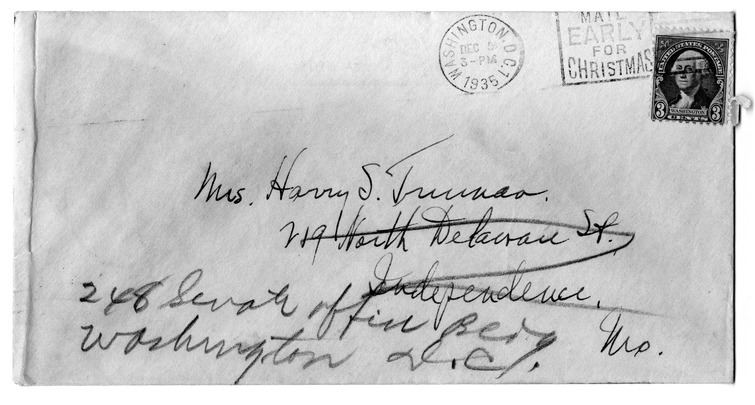 WASHINGTON, D.C. 1
DEC 5
3-PM
1935
MAIL
EARLY
FOR
CHRISTMAS
UNITED STATES POSTAGE
WASHINGTON
3 CENTS 3
Mrs. Harry S. Truman.
219 North Delaware St.
Independence,
Mo.
248 Senate office Bldg
Washington D.C.